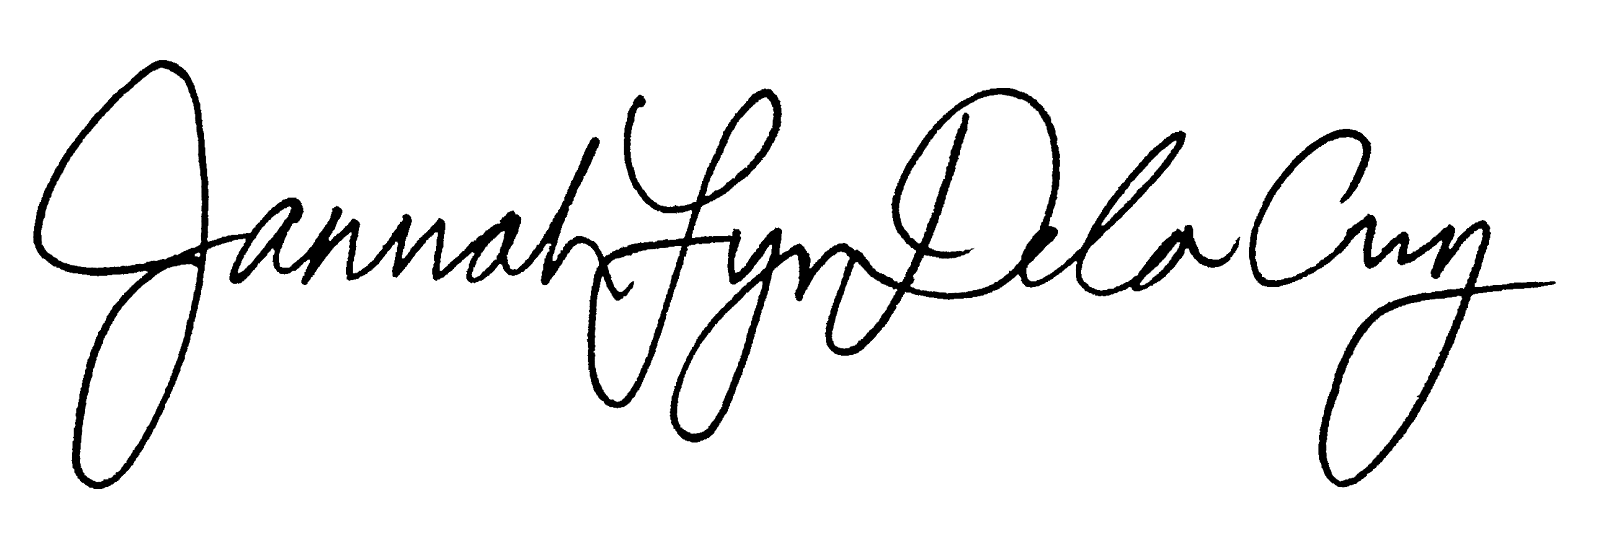 Jannah Lyn Dela Cruz